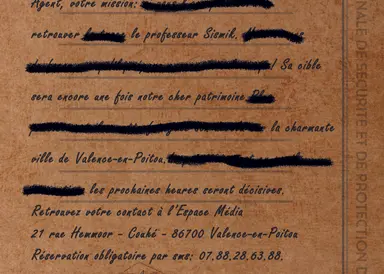 Agent, votre mission:
retrouver le professeur Sismik.
! Sa cible
sera encore une fois notre cher patrimoine
la charmante
ville de Valence-en-Poitou.
les prochaines heures seront décisives.
Retrouvez votre contact à l'Espace Média
21 rue Hemmoor - Couhé - 86700 Valence-en-Poitou
Réservation obligatoire par sms: 07.88.28.63.88.
NALE DE SÉCURITÉ ET DE PROTECTION D